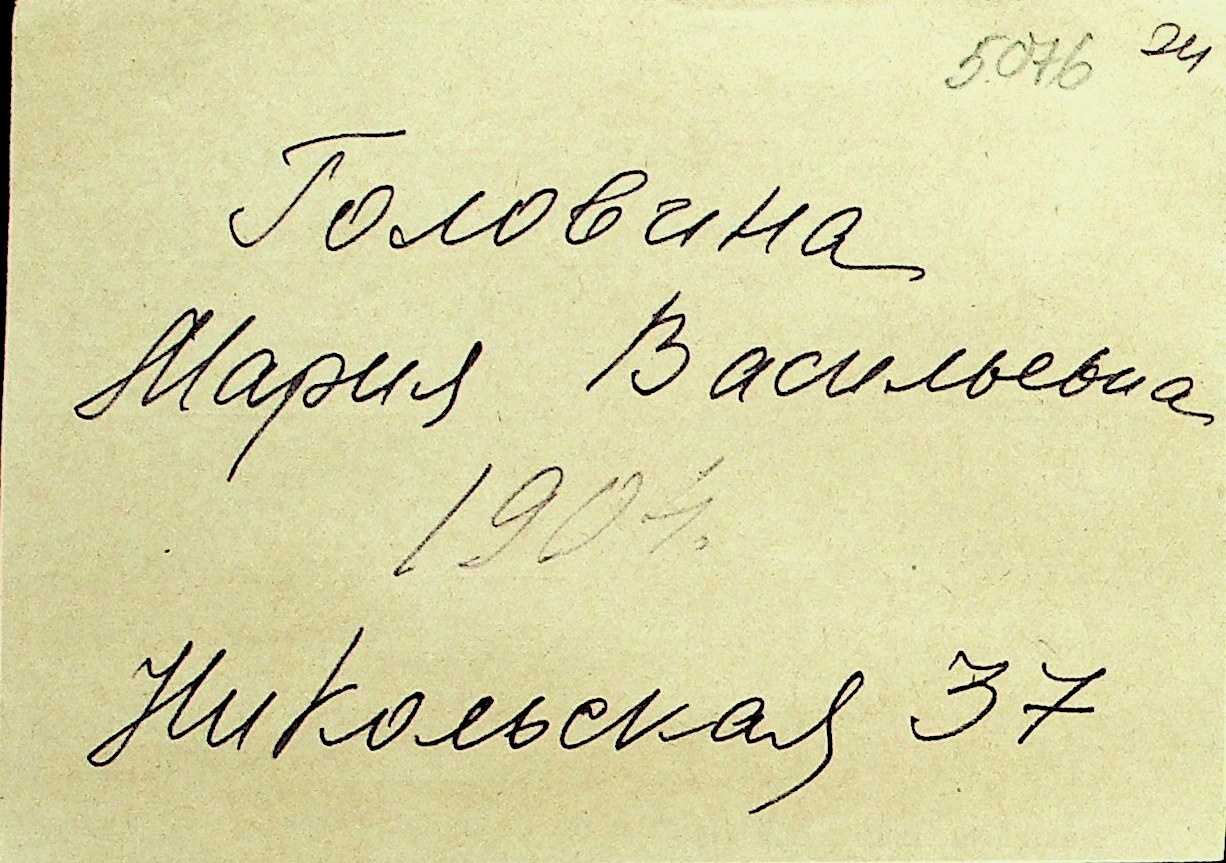 5076 24
Головина
Мария Васильевна
1904.
Никольская 37